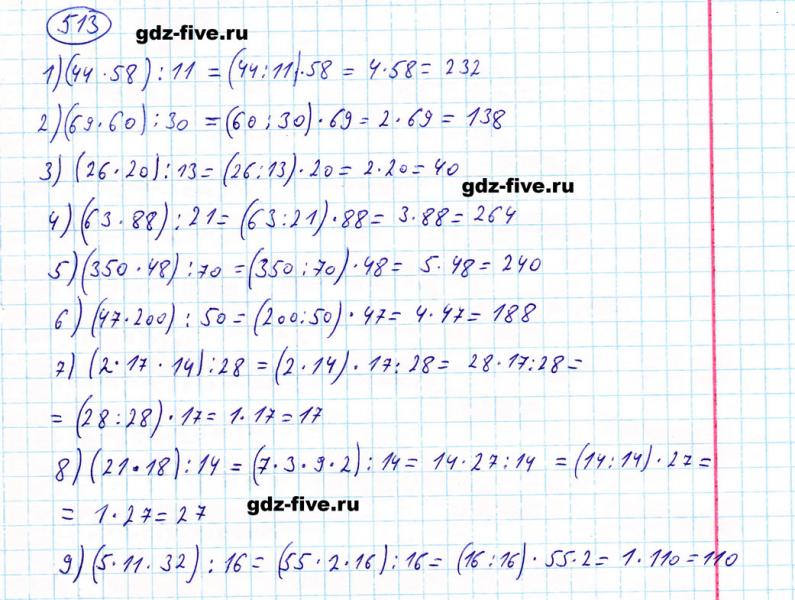 513
gdz-five.ru
1) (44 · 58) : 11 = (44 : 11) · 58 = 4 · 58 = 232
2) (69 · 60) : 30 = (60 : 30) · 69 = 2 · 69 = 138
3) (26 · 20) : 13 = (26 : 13) · 20 = 2 · 20 = 40
gdz-five.ru
4) (63 · 88) : 21 = (63 : 21) · 88 = 3 · 88 = 264
5) (350 · 48) : 70 = (350 : 70) · 48 = 5 · 48 = 240
6) (47 · 200) : 50 = (200 : 50) · 47 = 4 · 47 = 188
7) (2 · 17 · 14) : 28 = (2 · 14) · 17 : 28 = 28 · 17 : 28 =
= (28 : 28) · 17 = 1 · 17 = 17
8) (21 · 18) : 14 = (7 · 3 · 9 · 2) : 14 = 14 · 27 : 14 = (14 : 14) · 27 =
= 1 · 27 = 27
gdz-five.ru
9) (5 · 11 · 32) : 16 = (55 · 2 · 16) : 16 = (16 : 16) · 55 · 2 = 1 · 110 = 110